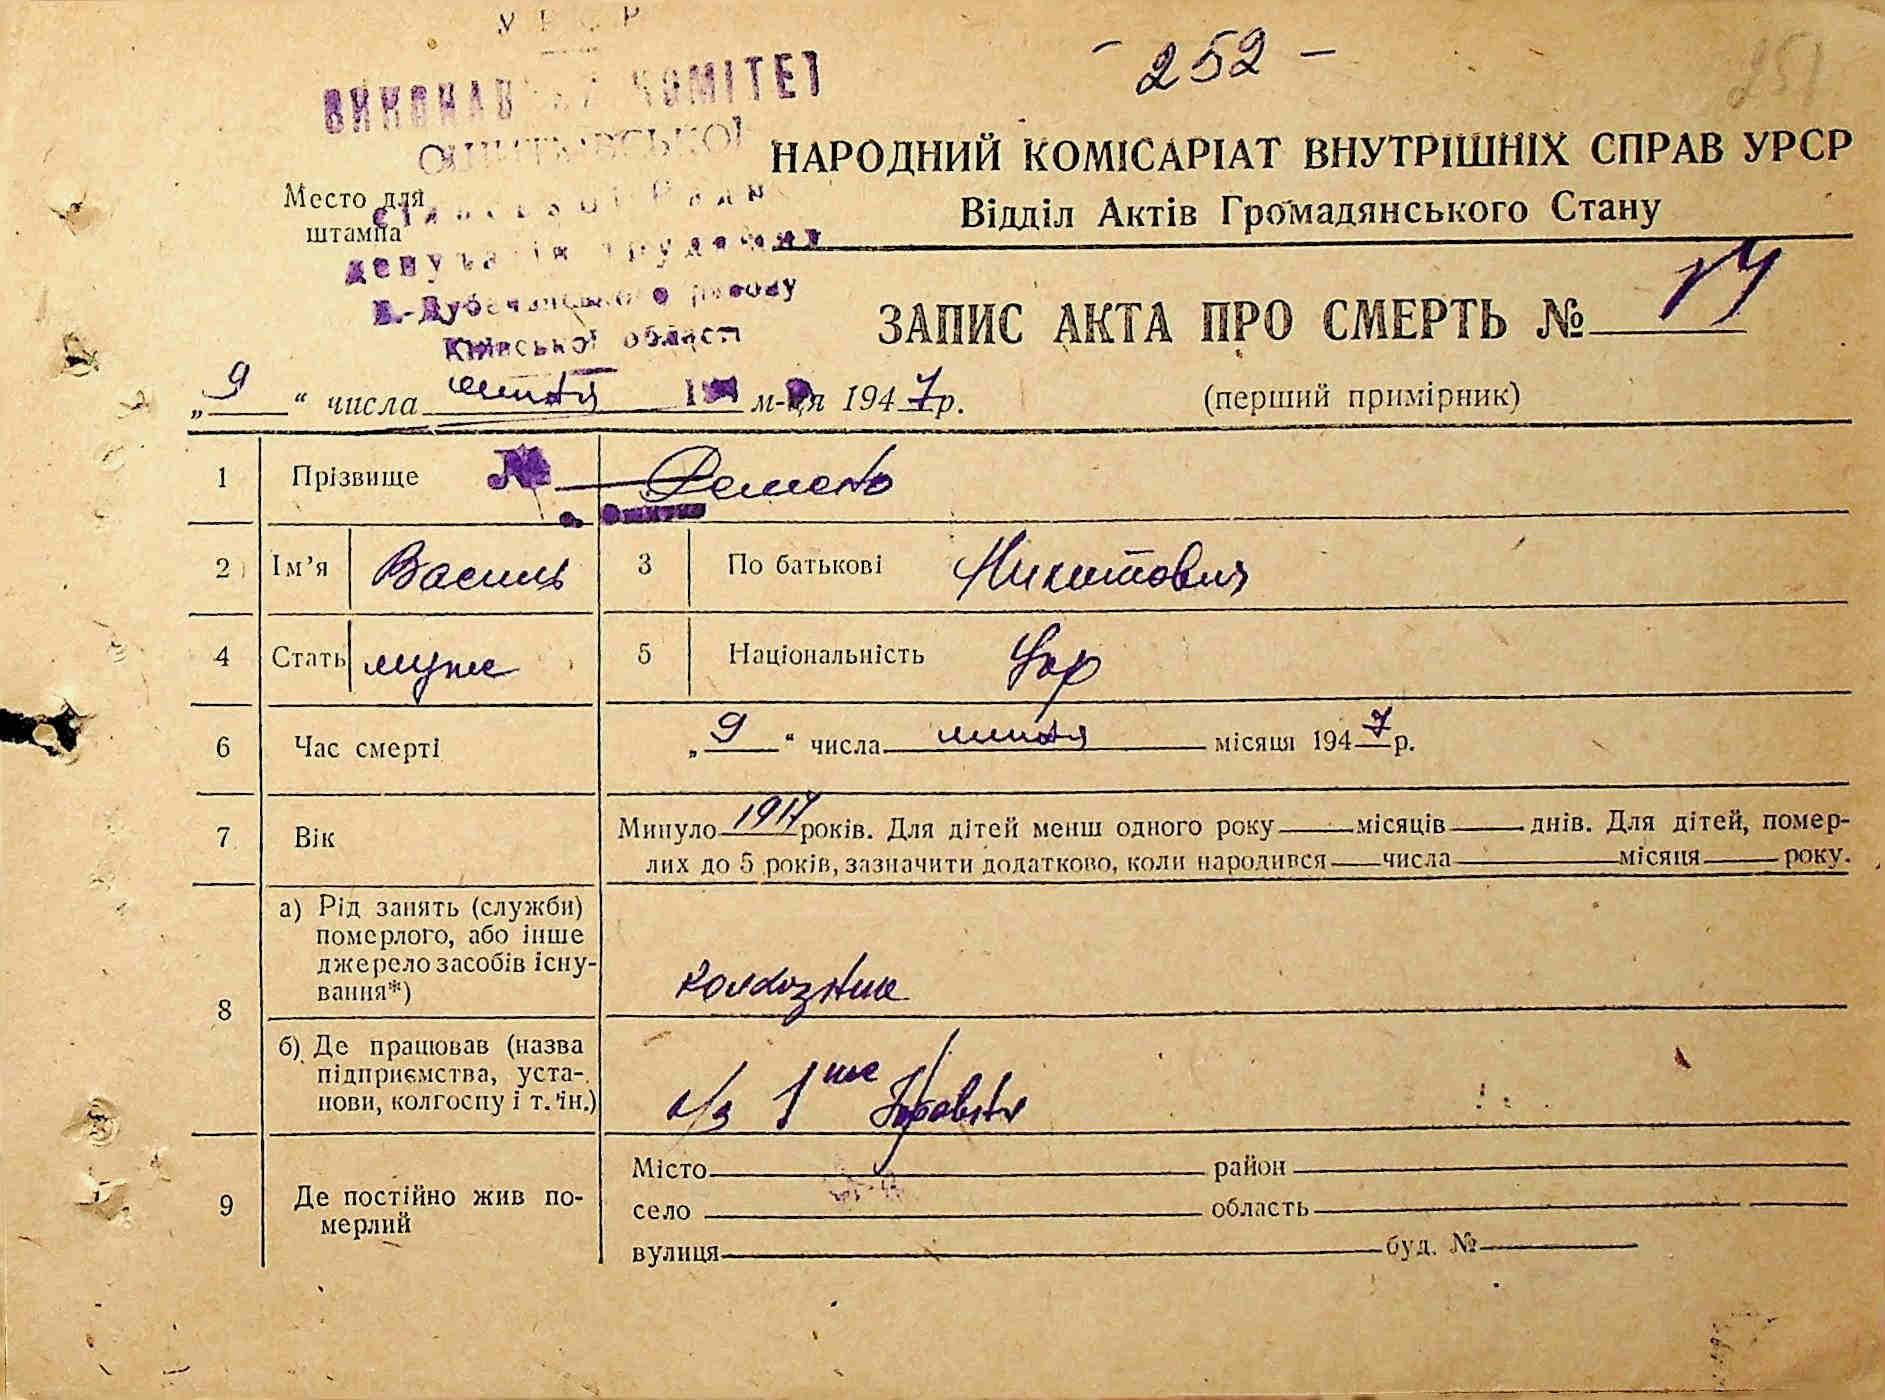 УРСР
- 252 -
251
ВИКОНАВЧИЙ КОМІТЕТ
сільської Ради
депутатів трудящих
В.-Дубечанського району
Київської області
Место для
штампа
НАРОДНИЙ КОМІСАРІАТ ВНУТРІШНІХ СПРАВ УРСР
Відділ Актів Громадянського Стану
ЗАПИС АКТА ПРО СМЕРТЬ №
„9“ числа липня м-ця 1947 р.
(перший примірник)
1 Прізвище Ремень
№
2 Ім’я Василь 3 По батькові Никитович
4 Стать муж 5 Національність Укр
6 Час смерті „9“ числа липня місяця 1947 р.
7 Вік Минуло 1917 років. Для дітей менш одного року місяців днів. Для дітей, помер-
лих до 5 років, зазначити додатково, коли народився числа місяця року.
8 а) Рід занять (служби)
померлого, або інше
джерело засобів існу-
вання*)
колхозник
б) Де працював (назва
підприємства, уста-
нови, колгоспу і т. ін.)
к/з 1 ше Травня
9 Де постійно жив по-
мерлий
Місто район
село область
вулиця буд. №